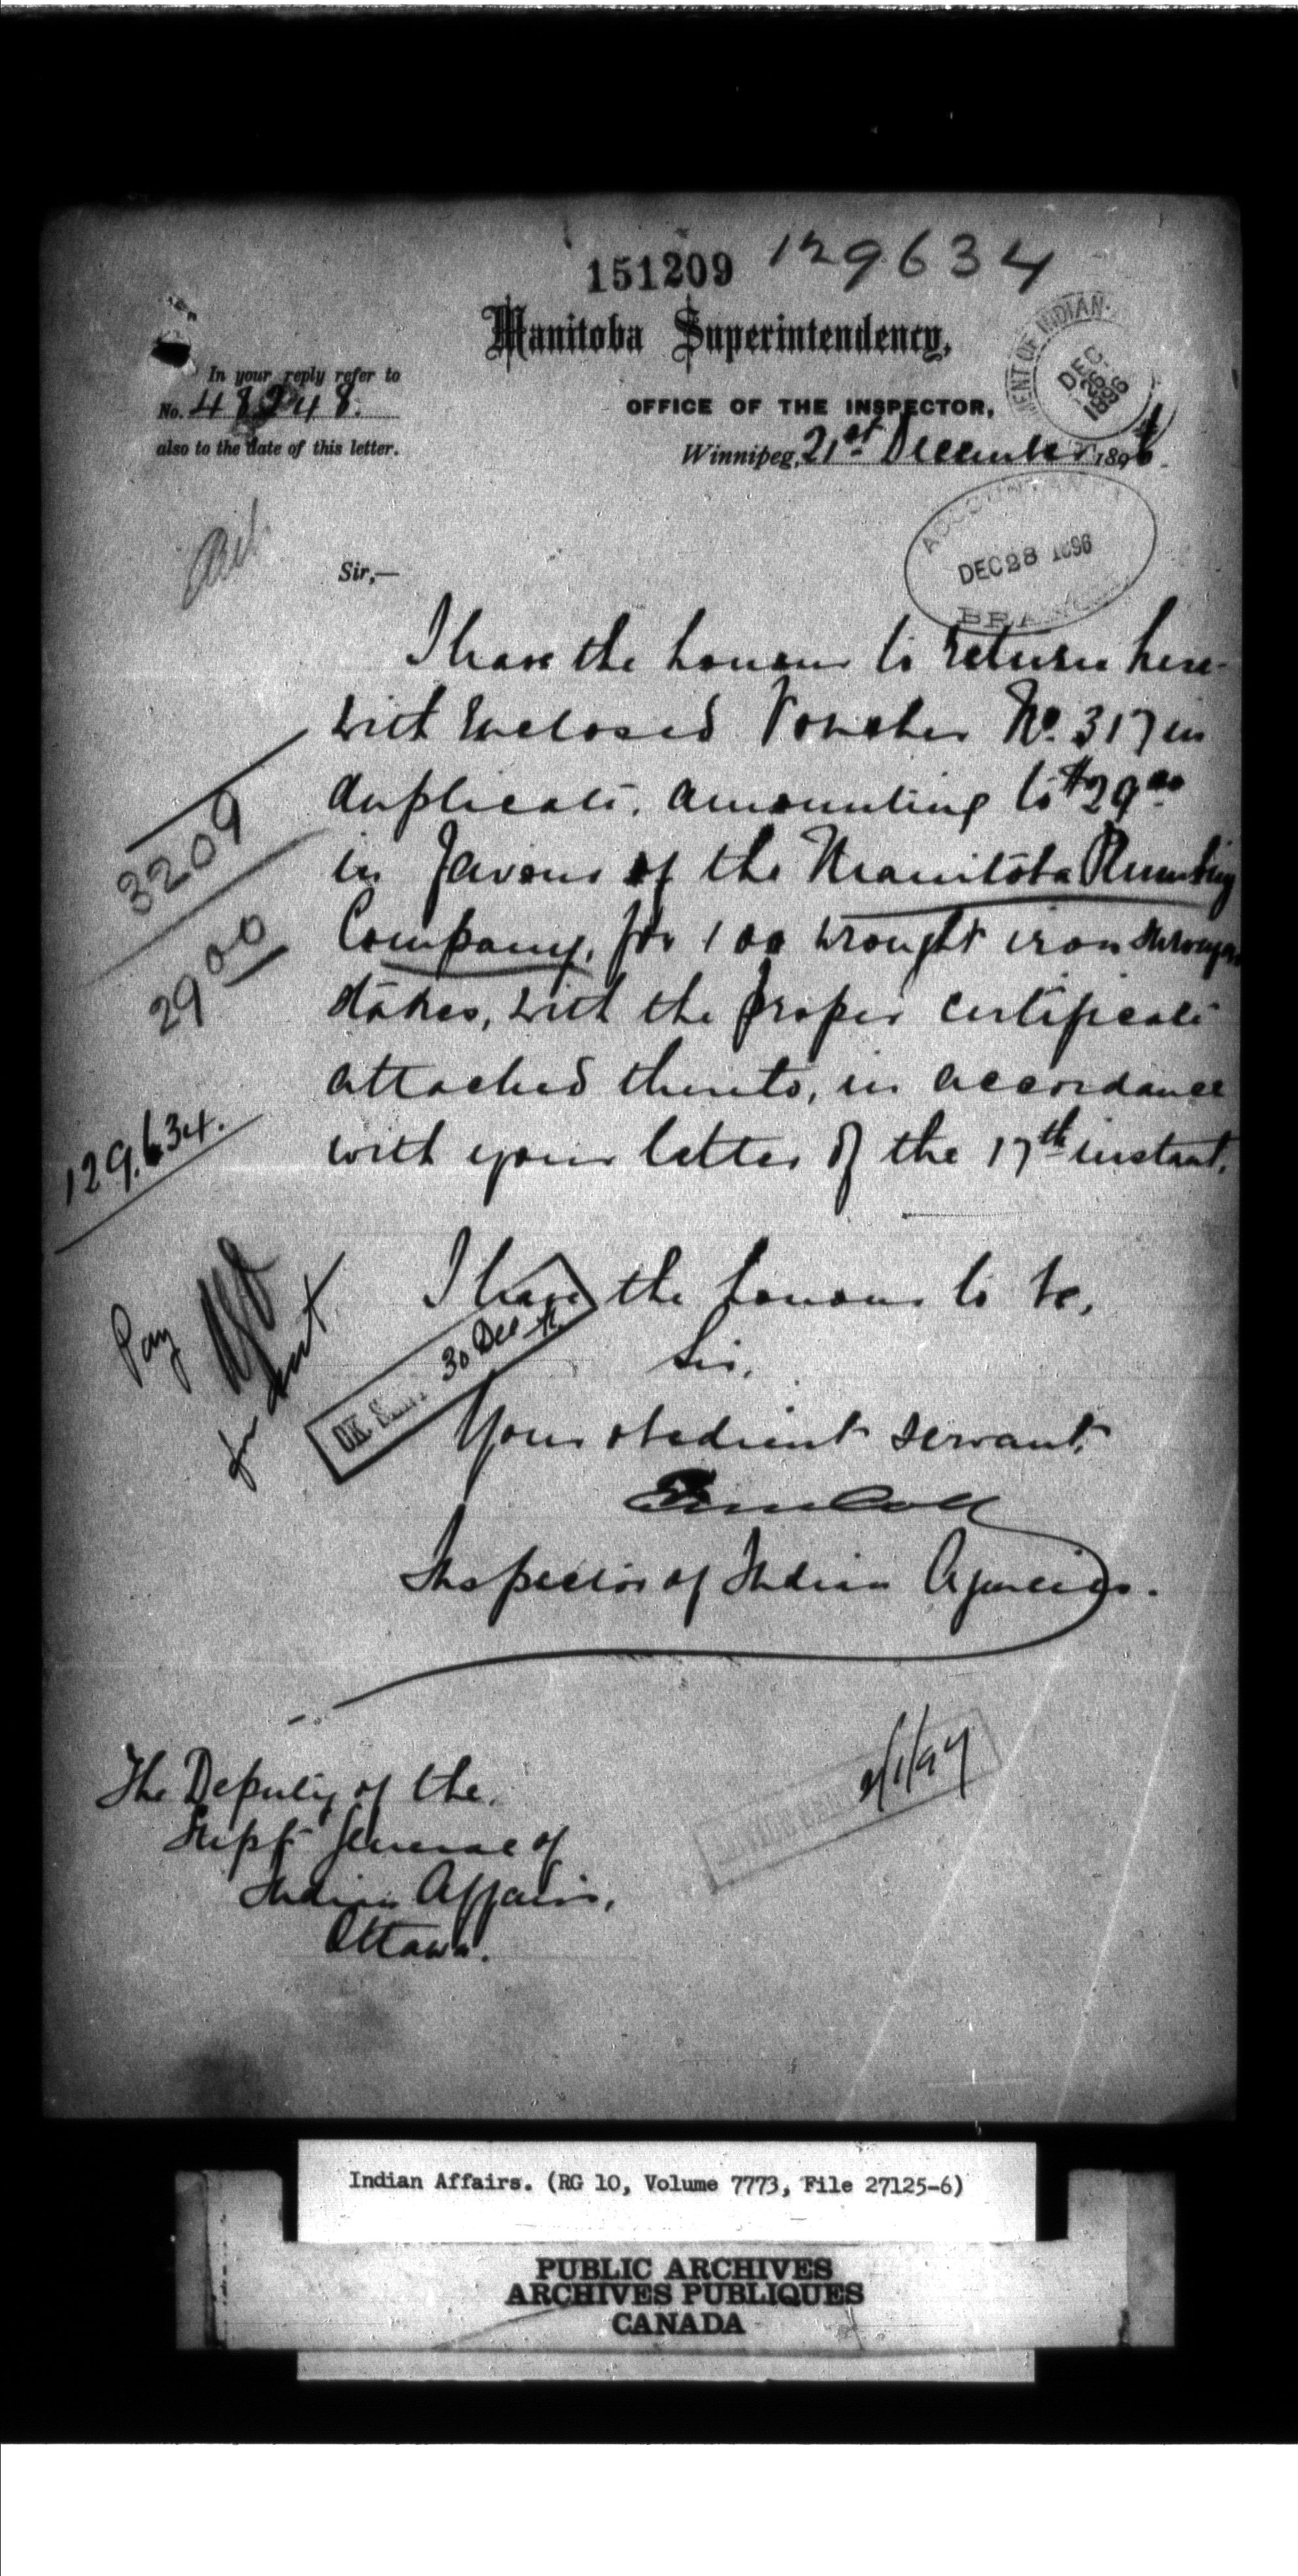 151209 129634
Manitoba Superintendency,
MENT OF INDIAN
DEC. 26 1896
In your reply refer to
No. 48248.
also to the date of this letter.
OFFICE OF THE INSPECTOR,
Winnipeg, 21st December 1896.
ACCOUNTANT'S
DEC 28 1896
BRANCH
Sir,—
I have the honour to return here-
with enclosed Voucher No. 317 in
duplicate, amounting to $29.00
in favour of the Manitoba Plumbing
Company, for 100 wrought iron survey
stakes, with the proper certificate
attached thereto, in accordance
with your letter of the 17th instant.
3209
29 00
129,634.
I have the honour to be,
Sir,
Your obedient servant,
Inspector of Indian Agencies.
Pay
for
OK 30 Dec
The Deputy of the
Supt General of
Indian Affairs,
Ottawa.
2/1/97
Indian Affairs. (RG 10, Volume 7773, File 27125-6)
PUBLIC ARCHIVES
ARCHIVES PUBLIQUES
CANADA